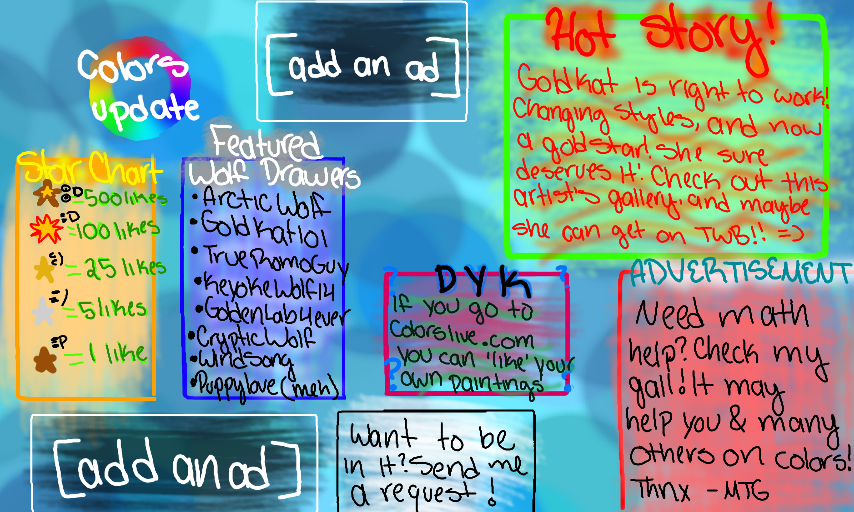 Colors
update
[add an ad]
Hot Story!
Goldkat is right to work!
Changing styles, and now
a gold star! She sure
deserves it! Check out this
artist's gallery, and maybe
she can get on TWB!! =)
Star Chart
:D =500 likes
:D =100 likes
=) =25 likes
=) =5 likes
=P =1 like
Featured
Wolf Drawers
•ArcticWolf
•GoldKat101
•TruePromoGuy
•KeyokeWolf14
•GoldenLab4ever
•CrypticWolf
•Windsong
•Puppylove(meh)
? DYK ?
If you go to
Colorslive.com
you can 'like' your
? own paintings
ADVERTISEMENT
Need math
help? Check my
gall! It may
help you & many
others on colors!
Thnx -MTG
[add an ad]
Want to be
in it? Send me
a request!